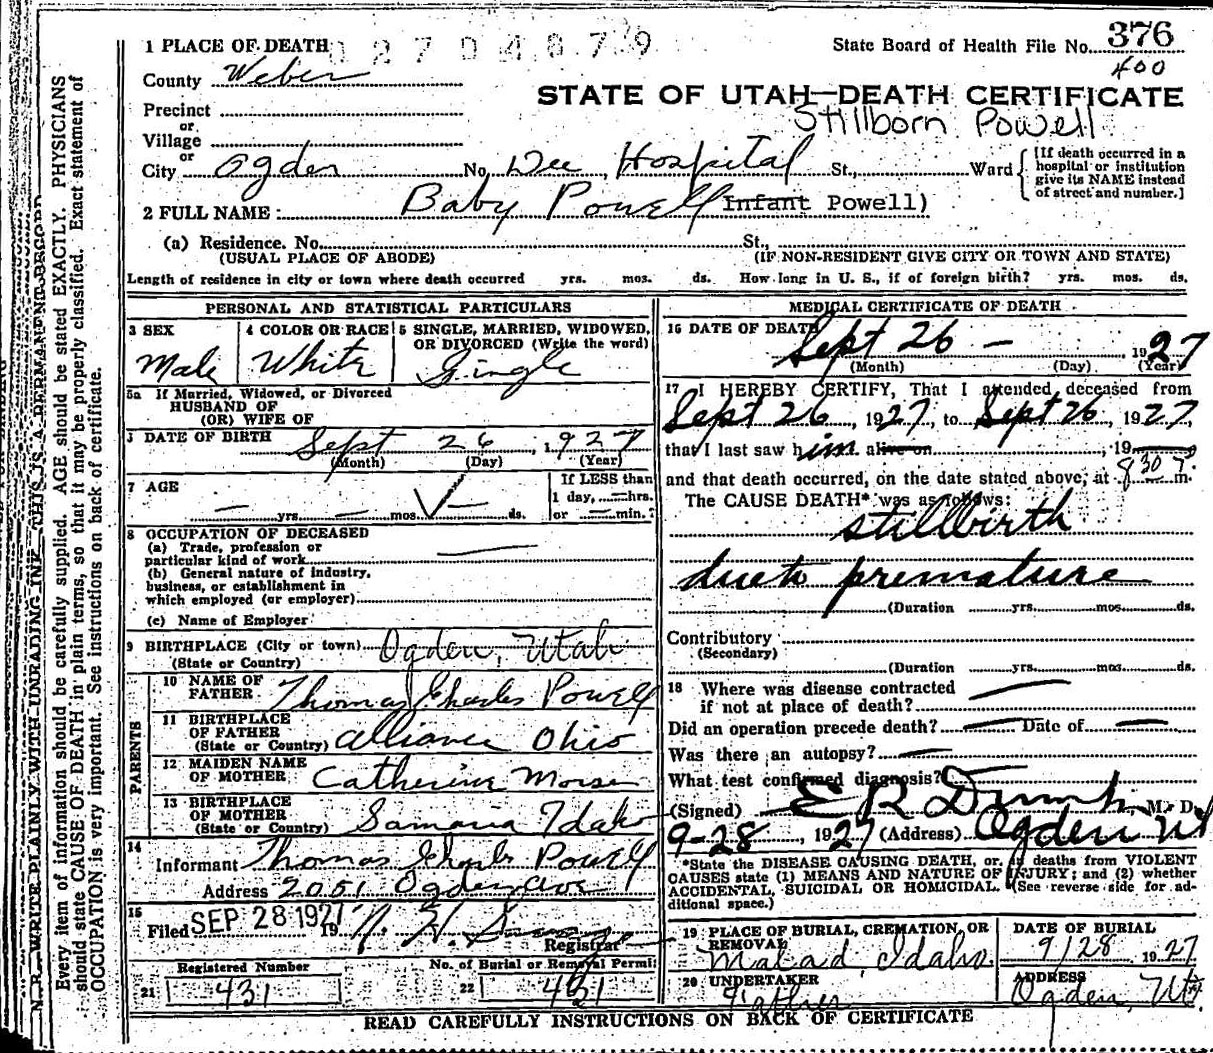 1 PLACE OF DEATH 0270467 9
State Board of Health File No. 376
400
County Weber
STATE OF UTAH—DEATH CERTIFICATE
Precinct
Stillborn Powell
or
Village
or
City Ogden No. Dee Hospital St., Ward
[If death occurred in a hospital or institution give its NAME instead of street and number.]
2 FULL NAME: Baby Powell Infant Powell)
(a) Residence. No. St.,
(USUAL PLACE OF ABODE) (IF NON-RESIDENT GIVE CITY OR TOWN AND STATE)
Length of residence in city or town where death occurred yrs. mos. ds. How long in U. S., if of foreign birth? yrs. mos. ds.
PERSONAL AND STATISTICAL PARTICULARS
3 SEX 4 COLOR OR RACE 5 SINGLE, MARRIED, WIDOWED,
OR DIVORCED (Write the word)
Male White Single
5a If Married, Widowed, or Divorced
HUSBAND OF
(OR) WIFE OF
DATE OF BIRTH Sept 26, 1927
(Month) (Day) (Year)
7 AGE If LESS than
1 day, —hrs.
— yrs. — mos. — ds. or —min.?
8 OCCUPATION OF DECEASED
(a) Trade, profession or
particular kind of work —
(b) General nature of industry,
business, or establishment in
which employed (or employer)
(c) Name of Employer
9 BIRTHPLACE (City or town) Ogden, Utah
(State or Country)
PARENTS
10 NAME OF
FATHER Thomas Charles Powell
11 BIRTHPLACE
OF FATHER
(State or Country) Alliance Ohio
12 MAIDEN NAME
OF MOTHER Catherine Morse
13 BIRTHPLACE
OF MOTHER
(State or Country) Samaria Idaho
14
Informant Thomas Charles Powell
Address 2051 Ogden Ave
15
Filed SEP 28 1927 19
Registrar
Registered Number No. of Burial or Removal Permit
21 431 22 431
MEDICAL CERTIFICATE OF DEATH
16 DATE OF DEATH Sept 26 — 1927
(Month) (Day) (Year)
17 I HEREBY CERTIFY, That I attended deceased from
Sept 26, 1927, to Sept 26, 1927,
that I last saw him alive on , 19
and that death occurred, on the date stated above, at 830 P. m.
The CAUSE DEATH* was as follows:
stillbirth
due to premature
(Duration yrs. mos. ds.
Contributory
(Secondary)
(Duration yrs. mos. ds.
18 Where was disease contracted
if not at place of death? —
Did an operation precede death? — Date of —
Was there an autopsy? —
What test confirmed diagnosis?
(Signed) E R M. D.
9-28, 1927 (Address) Ogden Ut
*State the DISEASE CAUSING DEATH, or, in deaths from VIOLENT
CAUSES state (1) MEANS AND NATURE OF INJURY; and (2) whether
ACCIDENTAL, SUICIDAL OR HOMICIDAL. (See reverse side for ad-
ditional space.)
19 PLACE OF BURIAL, CREMATION, OR DATE OF BURIAL
REMOVAL
Malad, Idaho 9/28 1927
20 UNDERTAKER ADDRESS
Father Ogden, Ut.
READ CAREFULLY INSTRUCTIONS ON BACK OF CERTIFICATE
N. B.—WRITE PLAINLY WITH UNFADING INK—THIS IS A PERMANENT RECORD
Every item of information should be carefully supplied. AGE should be stated EXACTLY. PHYSICIANS
should state CAUSE OF DEATH in plain terms, so that it may be properly classified. Exact statement of
OCCUPATION is very important. See instructions on back of certificate.